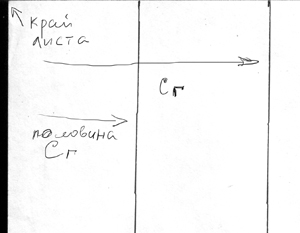 край
листа
Сг
половина
Сг